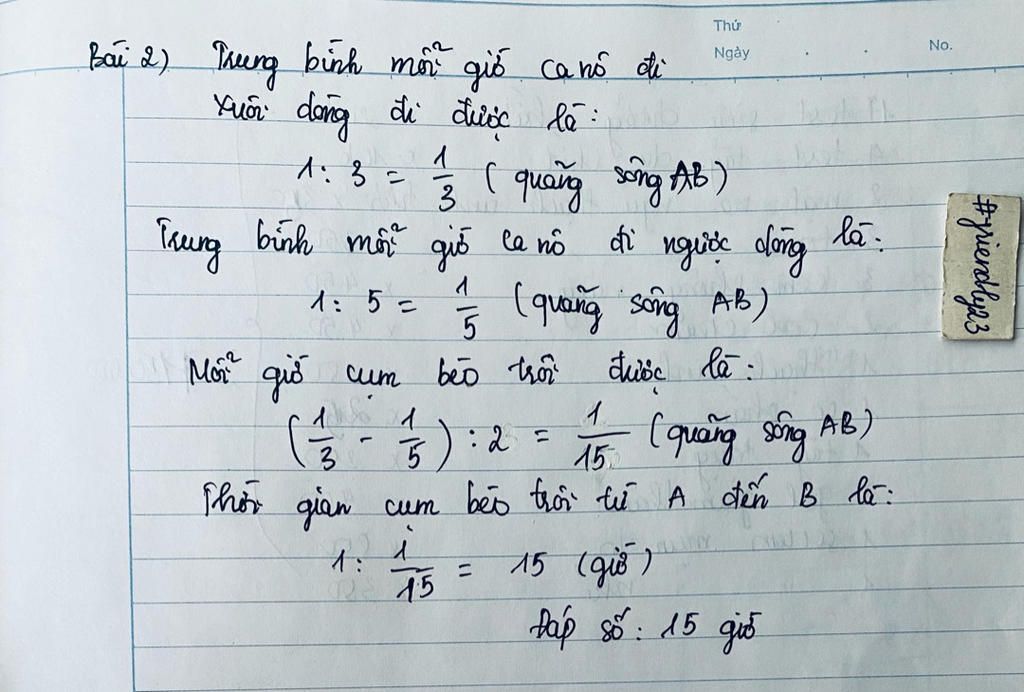 Thứ
Ngày . . No.
Bài 2) Trung bình mỗi giờ ca nô đi
xuôi dòng đi được là:
1 : 3 = 1/3 (quãng sông AB)
Trung bình mỗi giờ ca nô đi ngược dòng là:
1 : 5 = 1/5 (quãng sông AB)
Mỗi giờ cụm bèo trôi được là:
(1/3 - 1/5) : 2 = 1/15 (quãng sông AB)
Thời gian cụm bèo trôi từ A đến B là:
1 : 1/15 = 15 (giờ)
Đáp số: 15 giờ
#friendly23